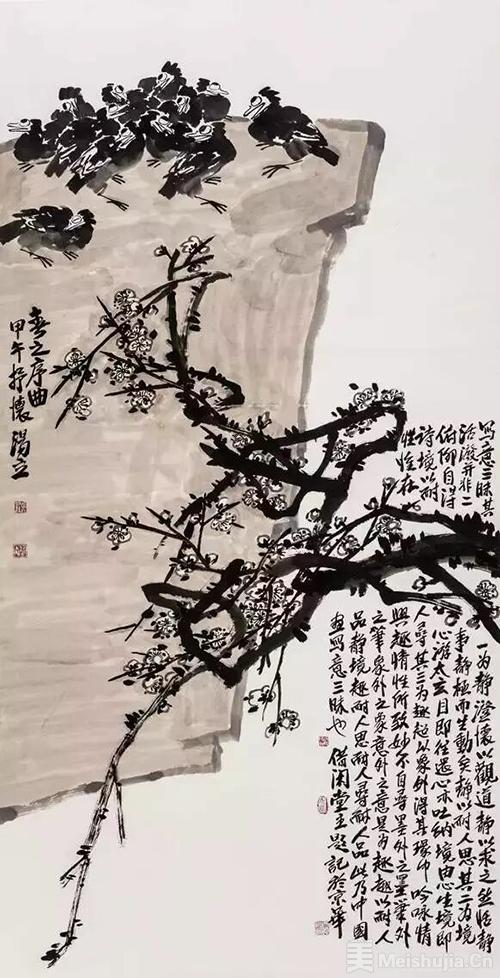 春之序曲
甲午抒懷 湯立
寫意三昧其
活潑并非二
俯仰自得
詩境以耐
性惟在
一为静澄懷以觀道静以求之然恬静
事静極而生動矣静以耐人思其二为境
心游太玄目即往還心亦吐納境由心生境即
人尋其三为趣超以象外得其環中吟咏情
與趣情性所致妙不自尋墨外之墨筆外
之筆象外之象意外之意是为趣趣以耐人
品静境趣耐人思耐人尋耐人品此乃中國
画寫意三昧也 借闲堂主題記於京華
美 Meishujia.Cn